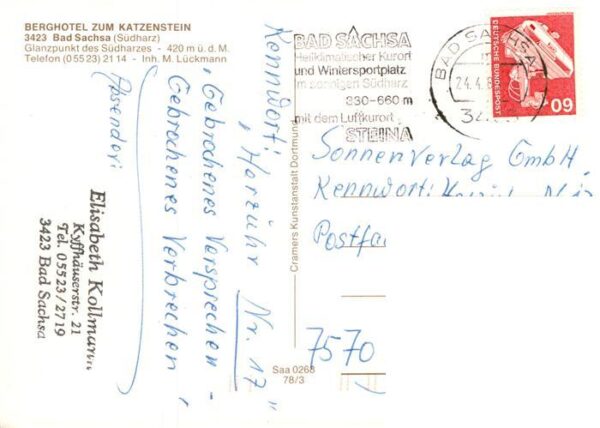 BERGHOTEL ZUM KATZENSTEIN
3423 Bad Sachsa (Südharz)
Glanzpunkt des Südharzes - 420 m ü. d. M.
Telefon (05523) 2114 - Inh. M. Lückmann
Kennwort:
„Herzuhr Nr. 17"
„Gebrochenes Versprechen -
Gebrochenes Verbrechen"
Absender:
Elisabeth Kollmann
Kyffhäuserstr. 21
Tel. 05523/2719
3423 Bad Sachsa
Cramers Kunstanstalt Dortmund
Saa 0268
78/3
BAD SACHSA
Heilklimatischer Kurort
und Wintersportplatz
im sonnigen Südharz
330-660 m
mit dem Luftkurort
STEINA
BAD SACHSA
24.4.8
DEUTSCHE BUNDESPOST
60
Sonnenverlag GmbH
Kennwort:
Postfa
7570